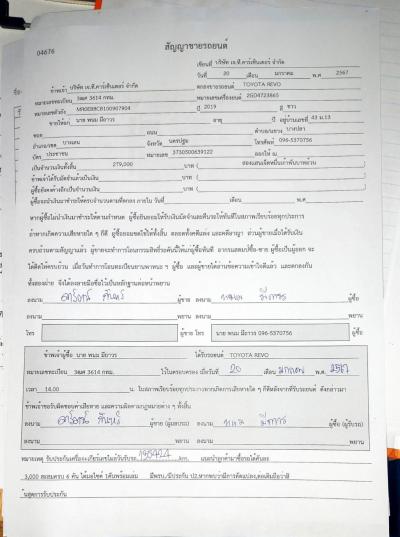 04676
สัญญาขายรถยนต์
เขียนที่ บริษัท เจ.ที.คาร์เซ็นเตอร์ จำกัด
วันที่ 20 เดือน มกราคม พ.ศ 2567
ข้าพเจ้า บริษัท เจ.ที.คาร์เซ็นเตอร์ จำกัด ตกลงขายรถยนต์ TOYOTA REVO
หมายเลขทะเบียน 3ฒศ 3614 กทม. หมายเลขเครื่องยนต์ 2GD4723865
หมายเลขตัวถัง ปี 2019 สี ขาว
ขายให้แก่ นาย พนม มียาวร อายุ ปี อยู่บ้านเลขที่ 43 ม.13
ซอย ถนน ตำบล/แขวง บางปลา
อำเภอ/เขต บางเลน จังหวัด นครปฐม โทรศัพท์ 096-5370756
บัตร ประชาชน หมายเลข 3730500639122 ออกให้ ณ
เป็นจำนวนเงินทั้งสิ้น 279,000 บาท ( สองแสนเจ็ดหมื่นเก้าพันบาทถ้วน
ข้าพเจ้าได้รับมัดจำแล้วเป็นเงิน บาท (
ผู้ซื้อยังคงค้างอีกเป็นจำนวนเงิน บาท (
ผู้ซื้อจะนำเงินมาชำระให้ครบจำนวนตามที่ตกลง ภายใน วันที่ เดือน พ.ศ.
หากผู้ซื้อไม่นำเงินมาชำระให้ตามกำหนด ผู้ซื้อยินยอมให้ริบเงินมัดจำและคืนรถให้ทันทีในสภาพเรียบร้อยทุกประการ
ถ้าหากเกิดความเสียหายใด ๆ ก็ดี ผู้ซื้อยอมชดใช้ให้ทั้งสิ้น ตลอดทั้งคดีแพ่ง และคดีอาญา ส่วนผู้ขายเมื่อได้รับเงิน
ครบถ้วนตามสัญญาแล้ว ผู้ขายจะทำการโอนกรรมสิทธิ์รถคันนี้ให้แก่ผู้ซื้อทันที อากรแสตมป์ซื้อ-ขาย ผู้ซื้อเป็นผู้ออก จะ
ได้คิดให้ครบถ้วน เมื่อวันทำการโอนทะเบียนยานพาหนะ ฯ ผู้ซื้อ และผู้ขายได้อ่านข้อความเข้าใจดีแล้ว และตกลงกัน
ทั้งสองฝ่าย จึงได้ลงลายมือชื่อไว้เป็นหลักฐานต่อหน้าพยาน
ลงนาม ผู้ขาย ลงนาม พนม มียาวร ผู้ซื้อ
ลงนาม พยาน ลงนาม พยาน
โทร ผู้ขาย โทร นาย พนม มียาวร 096-5370756 ผู้ซื้อ
ข้าพเจ้าผู้ซื้อ นาย พนม มียาวร ได้รับรถยนต์ TOYOTA REVO
หมายเลขทะเบียน 3ฒศ 3614 กทม. ไว้ในครอบครอง เมื่อวันที่ 20 เดือน มกราคม พ.ศ. 2567
เวลา 14.00 น. ในสภาพเรียบร้อยทุกประการหากเกิดการเสียหายใด ๆ ก็ดีหลังจากที่รับรถยนต์ ดังกล่าวมา
ข้าพเจ้าขอรับผิดชอบค่าเสียหาย และความผิดตามกฎหมายต่าง ๆ ทั้งสิ้น
ลงนาม ผู้ขาย (ผู้มอบรถ) ลงนาม พนม มียาวร ผู้ซื้อ (ผู้รับรถ)
ลงนาม พยาน ลงนาม พยาน
หมายเหตุ รับประกันเครื่อง+เกียร์เลขไมล์วันรับรถ 195424 km. แนะนำลูกค้ามาซื้อรถได้คันละ
3,000 สะสมครบ 6 คัน ได้มอไซค์ 1คันพร้อมเล่ม
ในสุดการรับประกัน